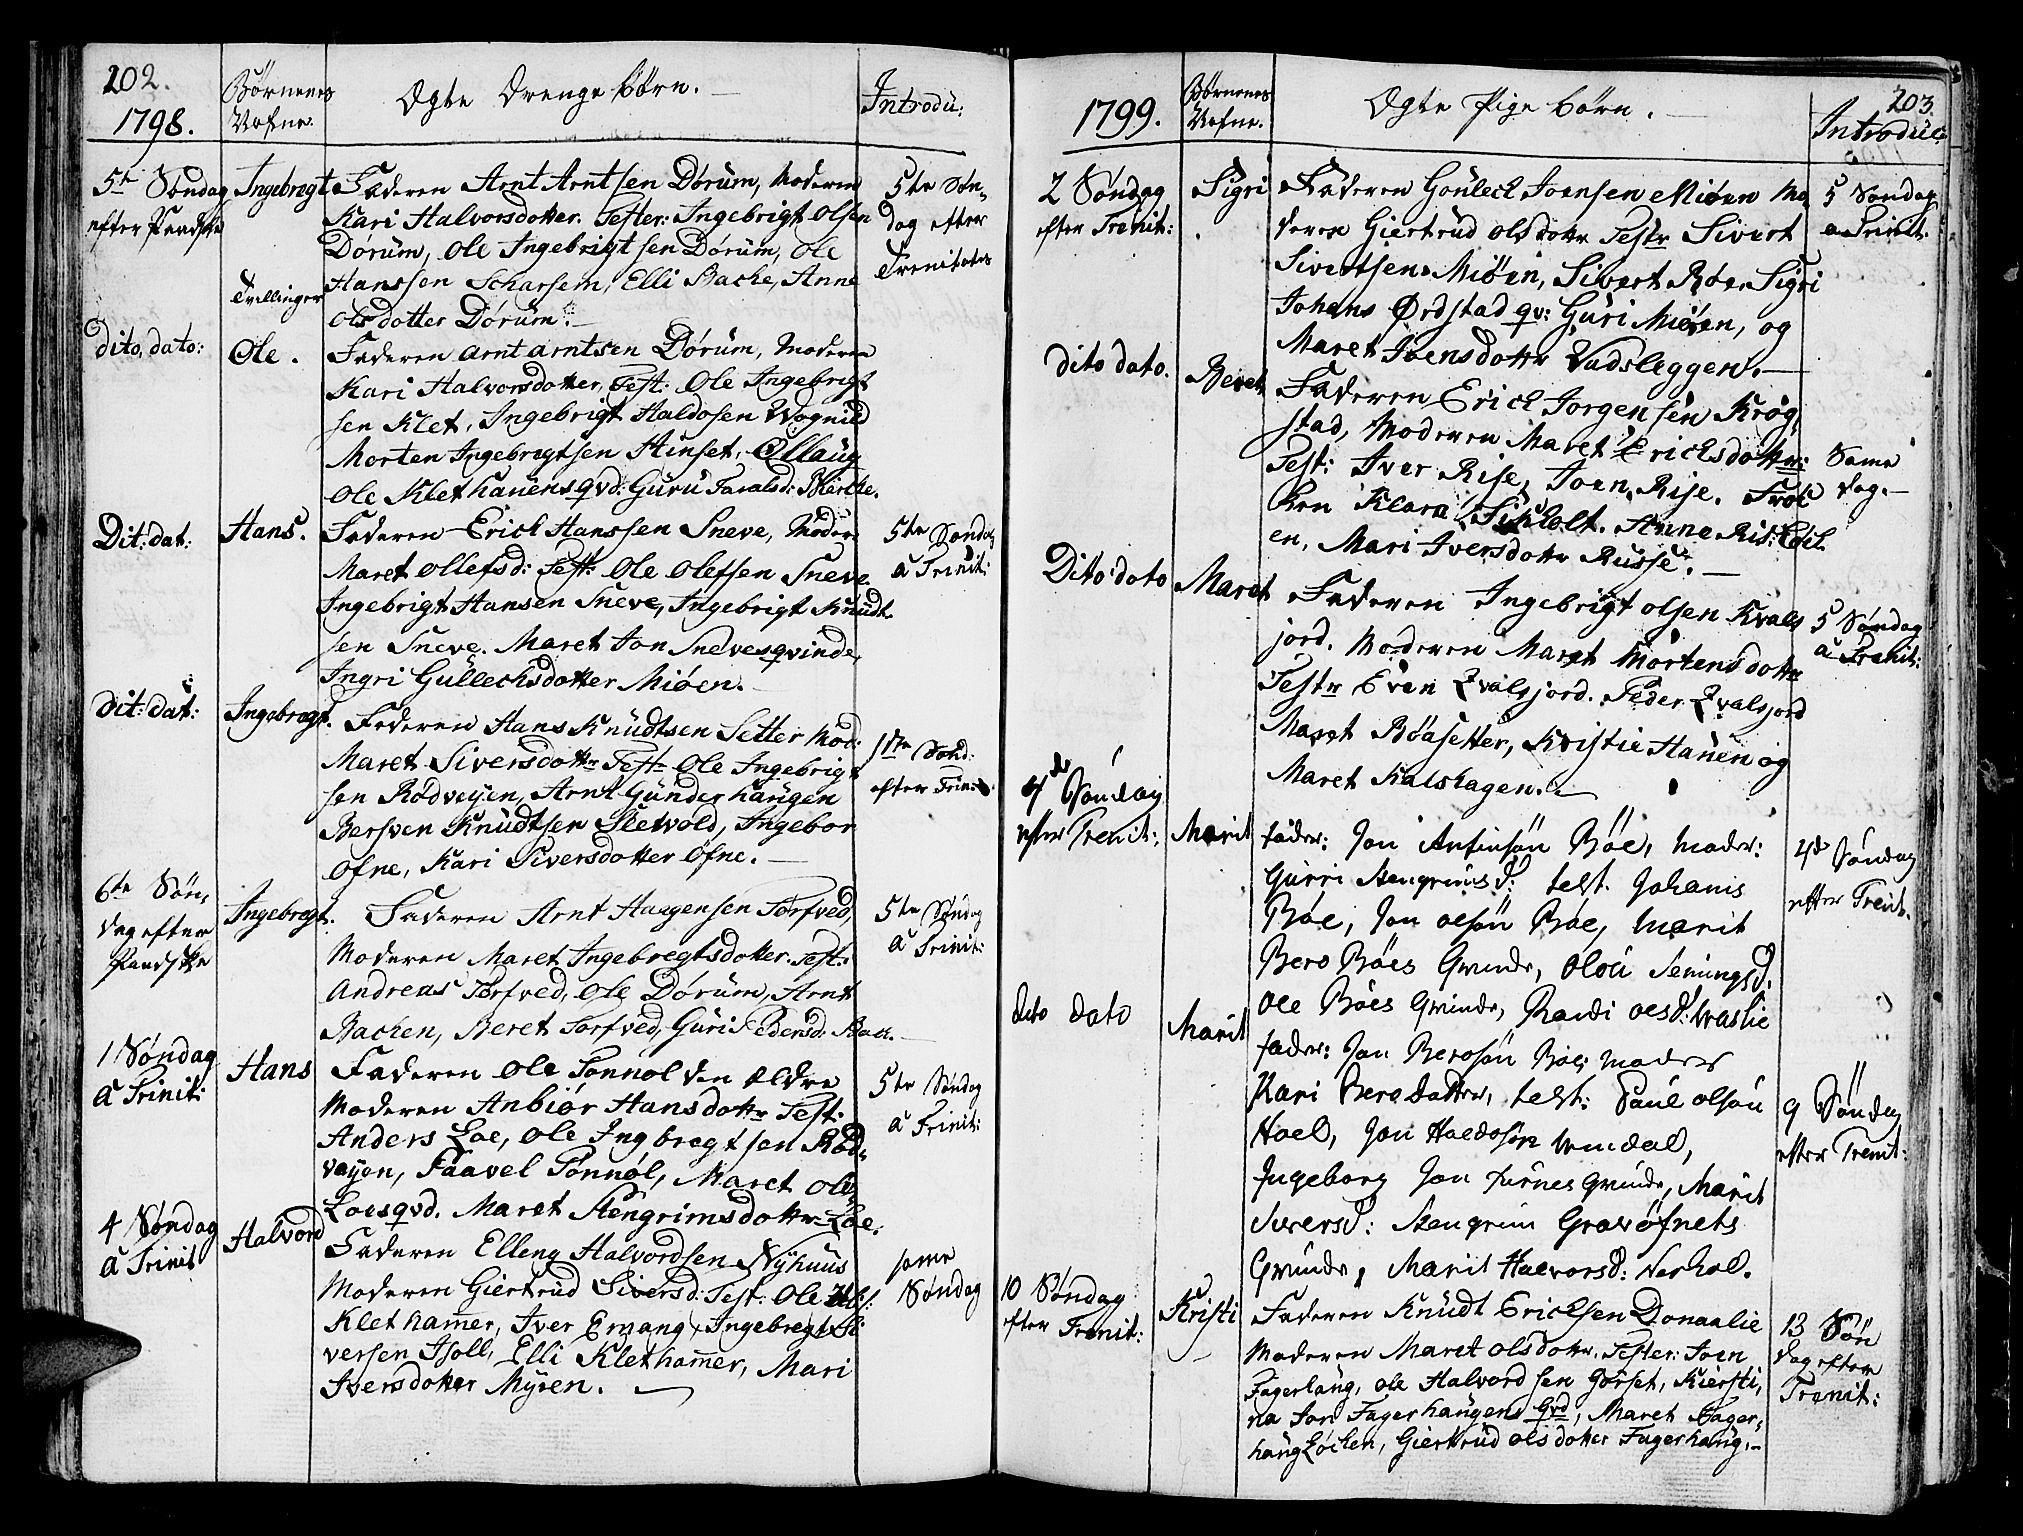 202.
1798.
Børnenes Nafne.
Ægte Drenge børn. —
Introdu:
5te Søndag efter Paaske
Ingebregt
Tvillinger
Faderen Arnt Arntsen Dørum, Moderen
Kari Halvorsdotter. Tester: Ingebrigt Olsen
Dørum, Ole Ingebrigtsen Dørum, Ole
Hanssen Scharsem, Elli Bache, Anne
Olsdotter Dørum. —
5te Søn-
dag efter
Trenitatis
dito, dato:
Ole.
Faderen Arnt Arntsen Dørum, Moderen
Kari Halvorsdotter, Test: Ole Ingebrigt
sen Klet, Ingebrigt Haldosen Wognild
Morten Ingebregtsen Hinset,
Ole Klethauens qvd: Guru
Dit: dat:
Hans.
Faderen Erick Hanssen Sneve, Moder
Maret Ollefsd: Test: Ole Olefsen Sneve
Ingebrigt Hansen Sneve, Ingebrigt Knudt
sen Sneve. Maret Jon Sneves qvinde,
Ingri Gullechsdotter Miøen. —
5te Søndag
a Trinit:
Dit: dat:
Ingebregt.
Faderen Hans Knudtsen Setter Mod:
Maret Siversdottr Testr Ole Ingebrigt
sen Rødveyen, Arnt Gunderhaugen
Bersven Knudtsen Sletvold, Ingebor
Ofne, Kari Siversdotter Øfne. —
1ste Sønd:
efter Trinit.
6te Søn,
dag efter
Paaske
Ingebregt.
Faderen Arnt Haagensen Torfved,
Moderen Maret Ingebregtsdotter. Test:
Andreas Torfved, Ole Dørum, Arnt
Bachen, Beret Torfved, Guri Pedersd: Bach. —
5te Søndag
a Trinit:
1 Søndag
a Trinit:
Hans
Faderen Ole Tonnøl den Ældre
Moderen Anbiør Hansdottr Test:
Anders Loe, Ole Ingbregtsen Rød-
vayen, Paavel Tonnøl, Maret Ole
Loes qvd. Maret Stengrimsdottr Loe.
5te Søndag
a Trinit:
4 Søndag
a Trinit
Halvord
Faderen Elleng Halvordsen Nyhuus
Moderen Giertrud Siversd: Test: Ole
Klethammer, Iver Ervang, Ingebregt Si
versen Isoll, Elli Klethammer, Mari
Iversdotter Myren. —
same
Søndag
203.
1799.
Børnenes Nafne.
Ægte Pige børn. —
Introduc:
2 Søndag
efter Trenit:
Sigri
Faderen Gouleck Joensen Miøen Mo
deren Giertrud Olsdottr Testr Sivert
Sivertsen Miøen, Sivert Røe, Sigri
Johans Ørdstad qv: Guri Miøen, og
Maret Joensdottr Vadsleggen. —
5 Søndag
a Trinit:
dito dato.
Beret
Faderen Erick Jorgensen Krog,
stad, Moderen Maret Ericksdottr:
Test: Iver Rise, Joen Rise. Frøe
ken Klara Anne Ris:
en, Mari Iversdottr Russe. —
Same
dag. —
Dito: dato
Maret
Faderen Ingebrigt Olsen Kvals
jord. Moderen Maret Mortensdottr
Testr Even Qvalsjord. Peder Qvalsjord
Maret Bøasetter, Kristie Hauen og
Maret Kalshagen. —
5 Søndag
a Trenit:
4de Søndag
efter Trenit:
Marit
fader: Jon Anfinsøn Böe, moder:
Gurri Stengrimsd: test. Johanis
Böe, Jon Olsøn Böe, Marit
Bero Böes Qvinde, Olou
Ole Böes Qvinde, Randi Oesd:
4de Søndag
efter Trenit.
dito dato
Marit
fader: Jon Berosøn Böe; moder
Kari Berodatter, test: Poul Olsøn
Hoel, Jon Haldosøn
Ingeborg Jon Furnes Qvinde, Marit
Siversd: Stengrim Gravøfnets
Qvinde, Marit Halvorsd: Verhol.
9 Søndag
efter Trenit:
10 Søndag
efter Trenit:
Kristi
Faderen Knudt Ericksen Donaalie
Moderen Maret Olsdottr. Tester: Joen
Fagerhaug, Ole Halvordsen Gorset, Kiersti,
na Jon Fagerhaugens Qvd, Maret Fager,
haug Løcken, Giertrud Olsdotter Fagerhaug. —
13 Søn
dag efter
Trenit: